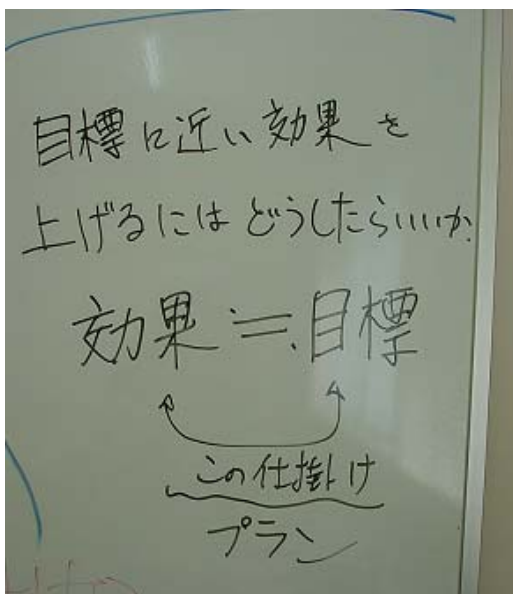 目標に近い効果を
上げるにはどうしたらいいか.
効果≒目標
この仕掛け
プラン